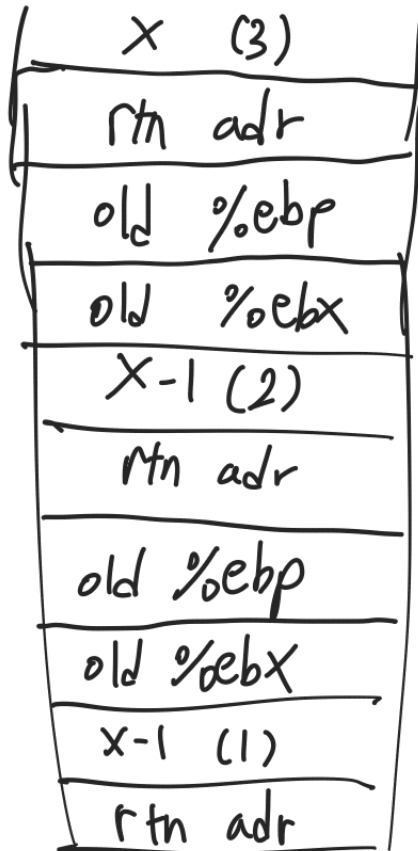 X (3)
rtn adr
old %ebp
old %ebx
X-1 (2)
rtn adr
old %ebp
old %ebX
x-1 (1)
rtn adr